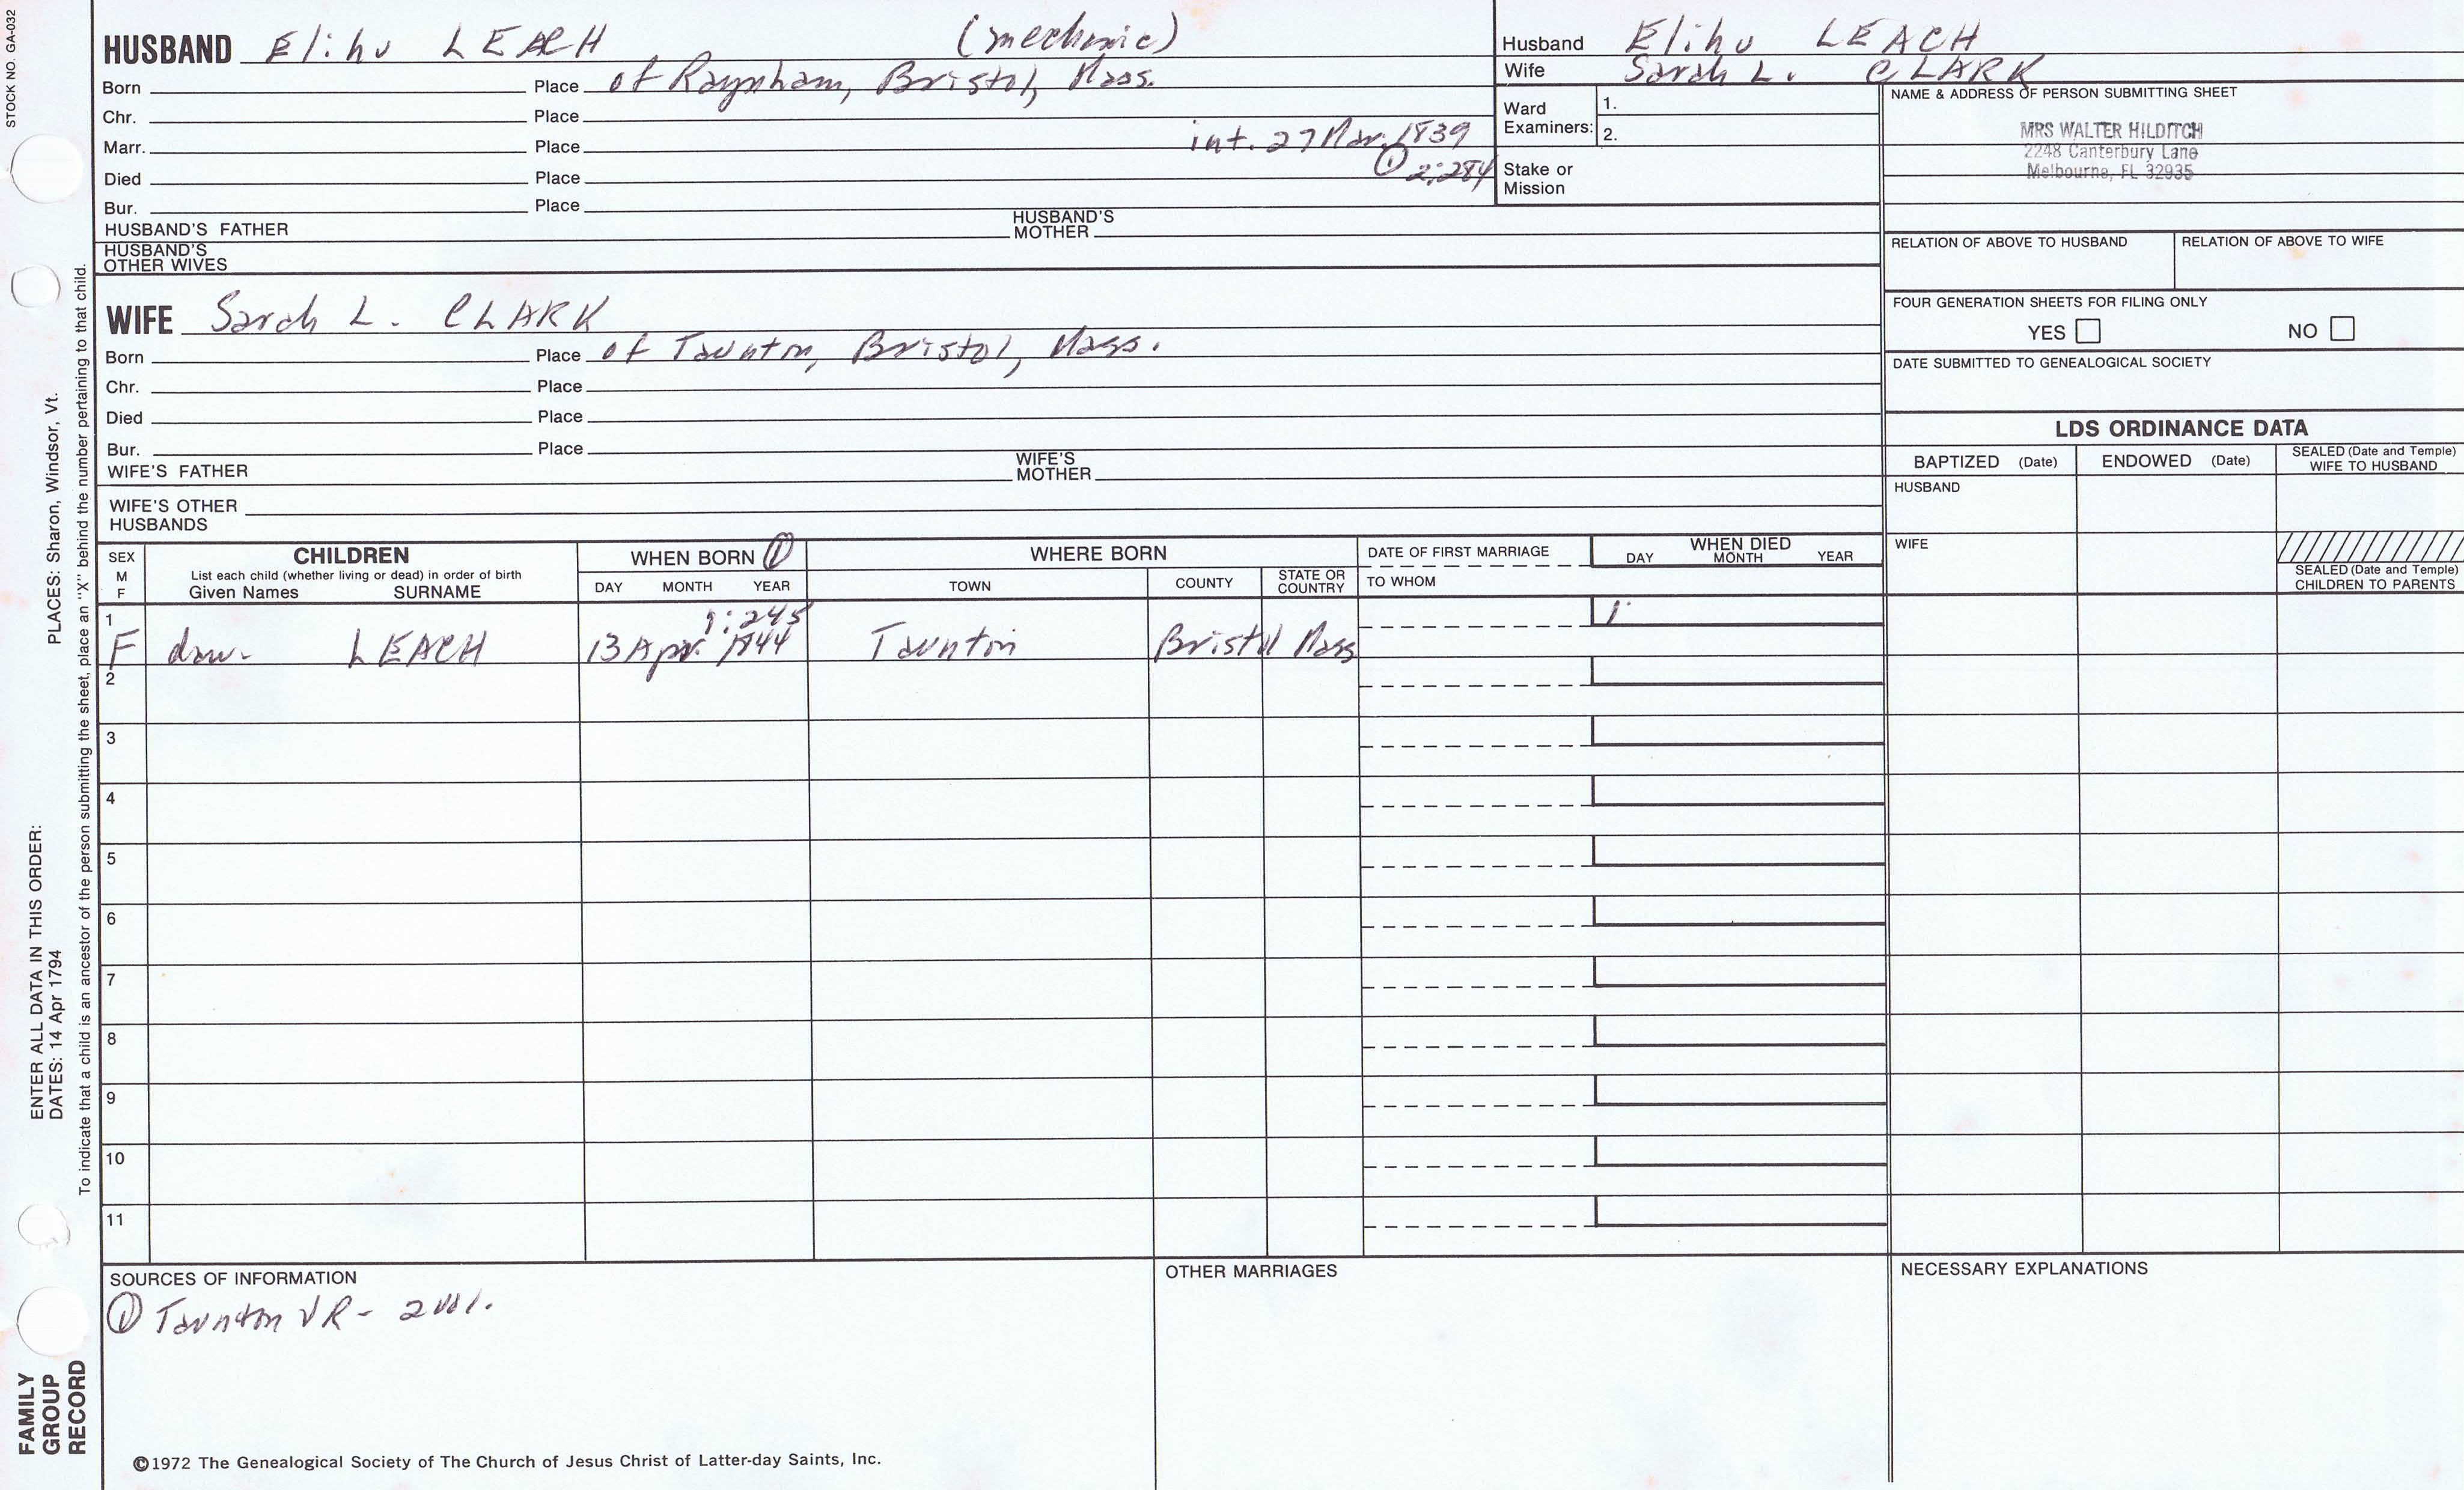 STOCK NO. GA-032
HUSBAND Elihu LEACH (mechanic)
Born Place of Raynham, Bristol, Mass.
Chr. Place
Marr. Place int. 27 Mar. 1839
① 2:284
Died Place
Bur. Place
HUSBAND'S FATHER HUSBAND'S MOTHER
HUSBAND'S OTHER WIVES
Husband Elihu LEACH
Wife Sarah L. CLARK
Ward Examiners: 1.
2.
Stake or Mission
NAME & ADDRESS OF PERSON SUBMITTING SHEET
MRS WALTER HILDITCH
2248 Canterbury Lane
Melbourne, FL 32935
RELATION OF ABOVE TO HUSBAND RELATION OF ABOVE TO WIFE
FOUR GENERATION SHEETS FOR FILING ONLY
YES NO
DATE SUBMITTED TO GENEALOGICAL SOCIETY
WIFE Sarah L. CLARK
Born Place of Taunton, Bristol, Mass.
Chr. Place
Died Place
Bur. Place
WIFE'S FATHER WIFE'S MOTHER
WIFE'S OTHER HUSBANDS
LDS ORDINANCE DATA
BAPTIZED (Date) ENDOWED (Date) SEALED (Date and Temple) WIFE TO HUSBAND
HUSBAND
WIFE
SEALED (Date and Temple) CHILDREN TO PARENTS
SEX M F
CHILDREN
List each child (whether living or dead) in order of birth
Given Names SURNAME
WHEN BORN ①
DAY MONTH YEAR
WHERE BORN
TOWN COUNTY STATE OR COUNTRY
DATE OF FIRST MARRIAGE
TO WHOM
WHEN DIED
DAY MONTH YEAR
1:245
1 F dau. LEACH 13 Apr. 1844 Taunton Bristol Mass
2
3
4
5
6
7
8
9
10
11
SOURCES OF INFORMATION
① Taunton VR - 2 vol.
OTHER MARRIAGES
NECESSARY EXPLANATIONS
©1972 The Genealogical Society of The Church of Jesus Christ of Latter-day Saints, Inc.
FAMILY GROUP RECORD
ENTER ALL DATA IN THIS ORDER:
DATES: 14 Apr 1794
PLACES: Sharon, Windsor, Vt.
To indicate that a child is an ancestor of the person submitting the sheet, place an "X" behind the number pertaining to that child.